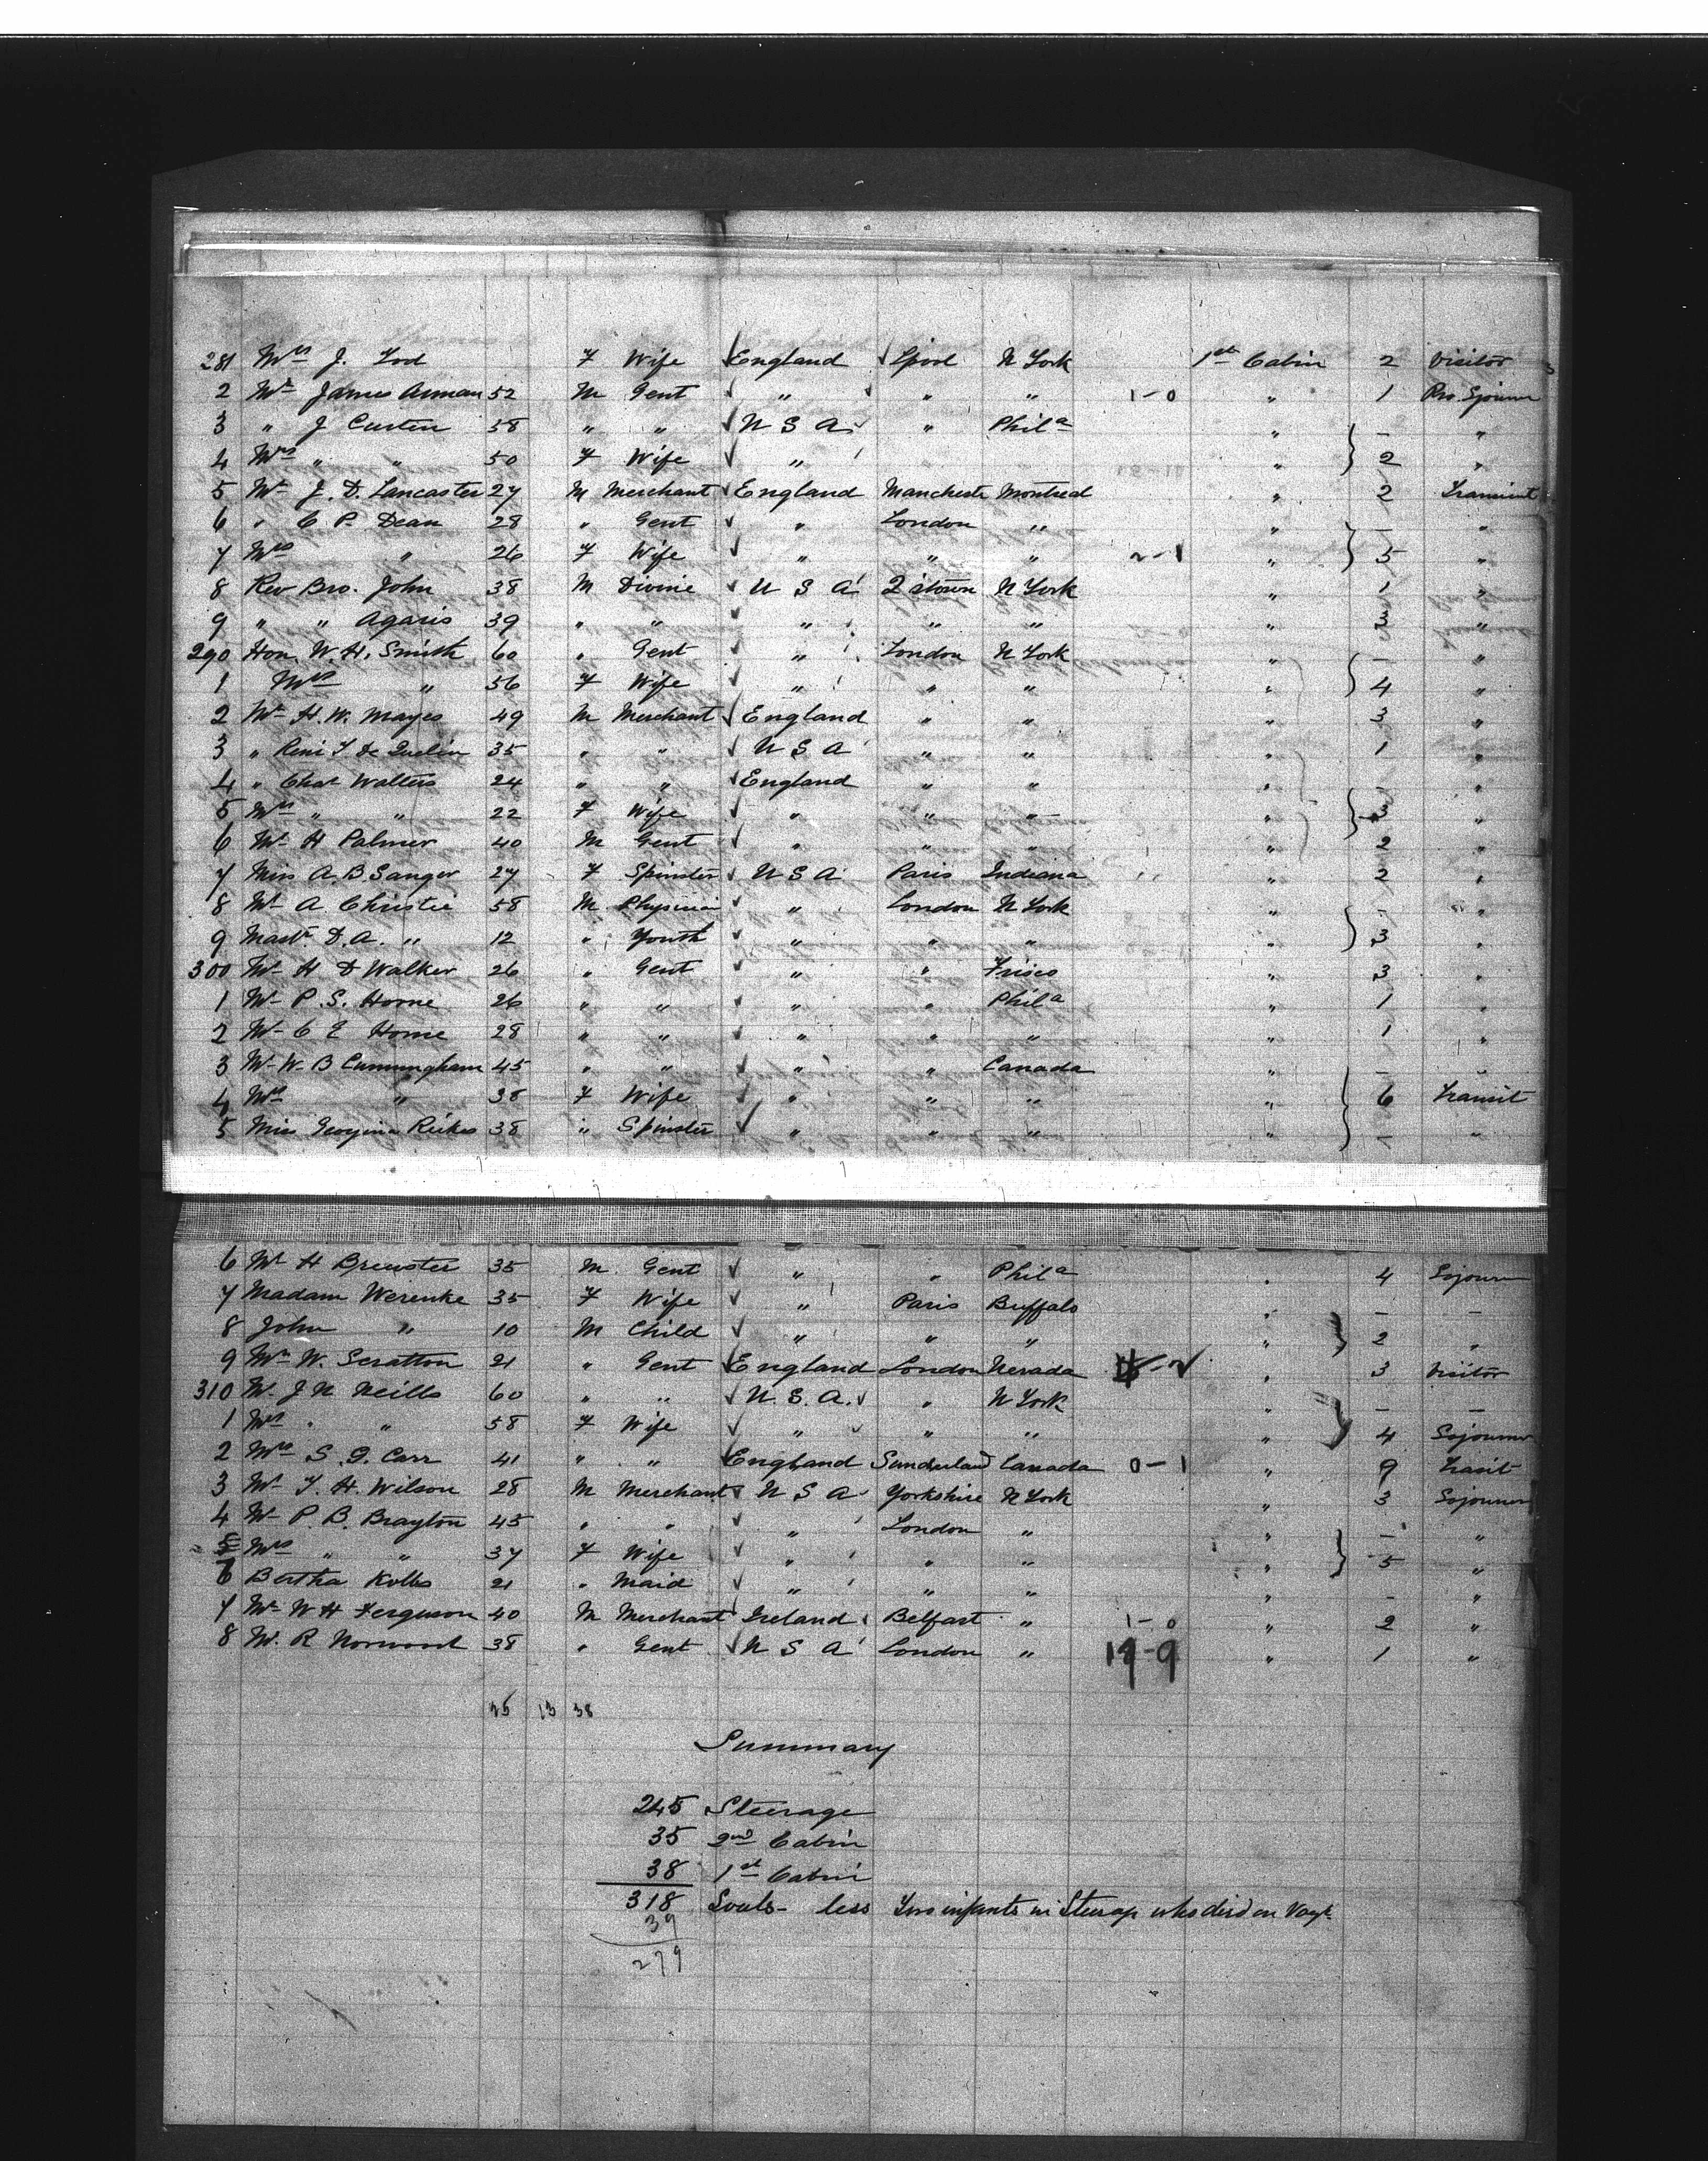 281 Mrs J. Tod F Wife England Lpool N York 1st Cabin 2 Visitor
2 Mr James Arman 52 M Gent " " " 1-0 " 1 Pro. Sjourn
3 " J Custen 58 " " U S A " Phila " - "
4 Mrs " " 50 F Wife " " 2 "
5 Mr J. D. Lancaster 27 M Merchant England Manchester Montreal " 2 Transient
6 " C P. Dean 28 " Gent " London " " - "
7 Mrs " 26 F Wife " " " 2-1 " 5 "
8 Rev Bro. John 38 M Divine U S A Q'stown N York " 1 "
9 " " Agaris 39 " " " " " " 3 "
290 Hon. W. H. Smith 60 " Gent " London N York " - "
1 Mrs " 56 F Wife " " " " 4 "
2 Mr H. W. Mayes 49 M Merchant England " " " 3 "
3 " René T De Quelin 35 " " U S A " " " 1 "
4 " Chas Walters 24 " " England " " " "
5 Mrs " " 22 F Wife " " " " 3 "
6 Mr H Palmer 40 M Gent " " " " 2 "
7 Miss A. B. Sanger 27 F Spinster U S A Paris Indiana " 2 "
8 Mr A Christie 58 M Physician " London N York " - "
9 Mastr D. A. " 12 " Youth " " " " 3 "
300 Mr H D Walker 26 " Gent " " Frisco " 3 "
1 Mr P. S. Horne 26 " " " " Phila " 1 "
2 Mr C E Horne 28 " " " " " " 1 "
3 Mr W. B Cunningham 45 " " " " Canada " - "
4 Mrs " 38 F Wife " " " " 6 Transit
5 Miss Georgina Reikes 38 " Spinster " " " " - "
6 Mr H Brewster 35 M Gent " " Phila " 4 Sojourn
7 Madam Werenke 35 F Wife " Paris Buffalo " - -
8 John " 10 M Child " " " " 2 "
9 Mr W. Scratton 21 " Gent England London Nevada " 3 Visitor
310 Mr J N Neills 60 " " U. S. A. " N York " - -
1 Mrs " " 58 F Wife " " " " 4 Sojourner
2 Mrs S. G. Carr 41 " " England Sunderland Canada 0-1 " 9 Transit
3 Mr T. H. Wilson 28 M Merchant U S A Yorkshire N York " 3 Sojourner
4 Mr P. B. Brayton 45 " " " London " " - "
5 Mrs " " 37 F Wife " " " " 5 "
6 Bertha Kolbs 21 " Maid " " " " - "
7 Mr W H Ferguson 40 M Merchant Ireland Belfast " 1-0 " 2 "
8 Mr R Norwood 38 " Gent U S A London " 19-9 " 1 "
25 13 38
Summary
245 Steerage
35 2nd Cabin
38 1st Cabin
318 Souls - less Two infants in Steerage who died on Voyge
39
279